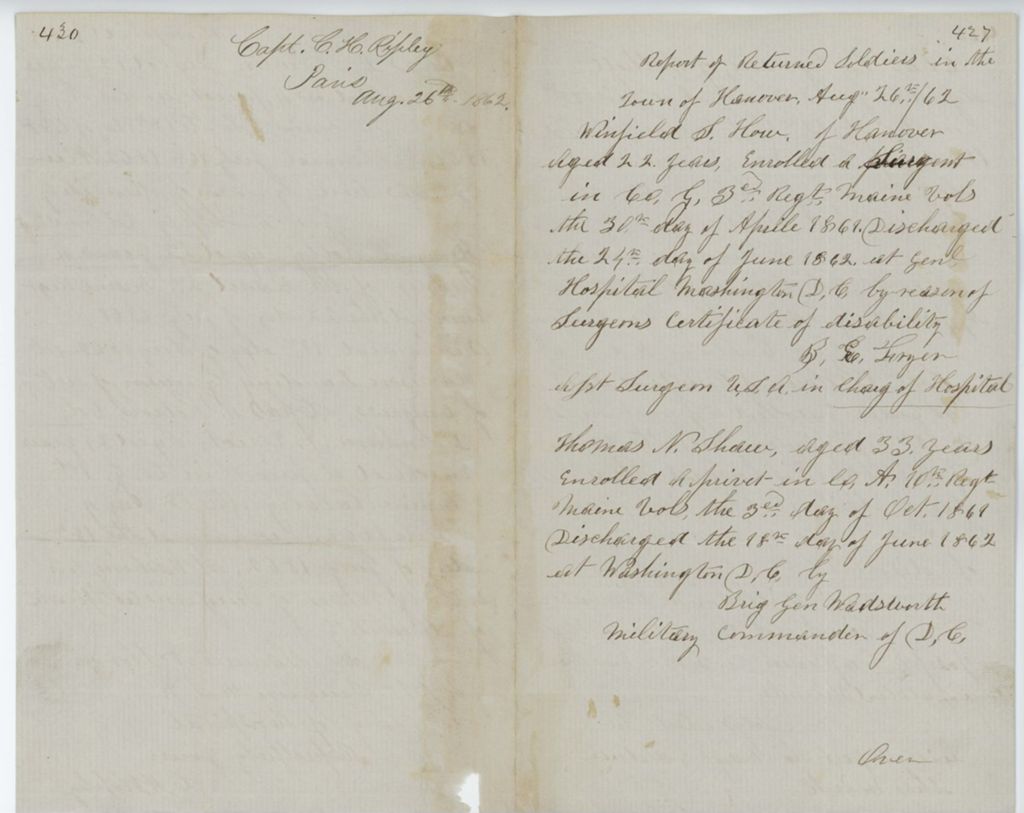 430
Capt. C. H. Ripley
Paris
Aug. 26th 1862.
427
Report of Returned Soldiers in the
Town of Hanover, Aug 26th/62
Winfield S. How, of Hanover
Aged 22 years, Enrolled a Surgent
in Co, G, 3ed Regt, Maine Vols
the 30th day of Aprile 1861. Discharged
the 24th day of June 1862 at Genl
Hospital Washington D, C, by reason of
Surgeons Certificate of disability
B, E, Fryer
Asst Surgeon U,S,A, in Charg of Hospital
Thomas N. Shaw, aged 33 years
Enrolled a privet in Co, A, 10th Regt
Maine Vols, the 3ed day of Oct. 1861
Discharged the 18th day of June 1862
at Washington D, C, by
Brig Gen Wadsworth
Military Commander of D, C,
Over